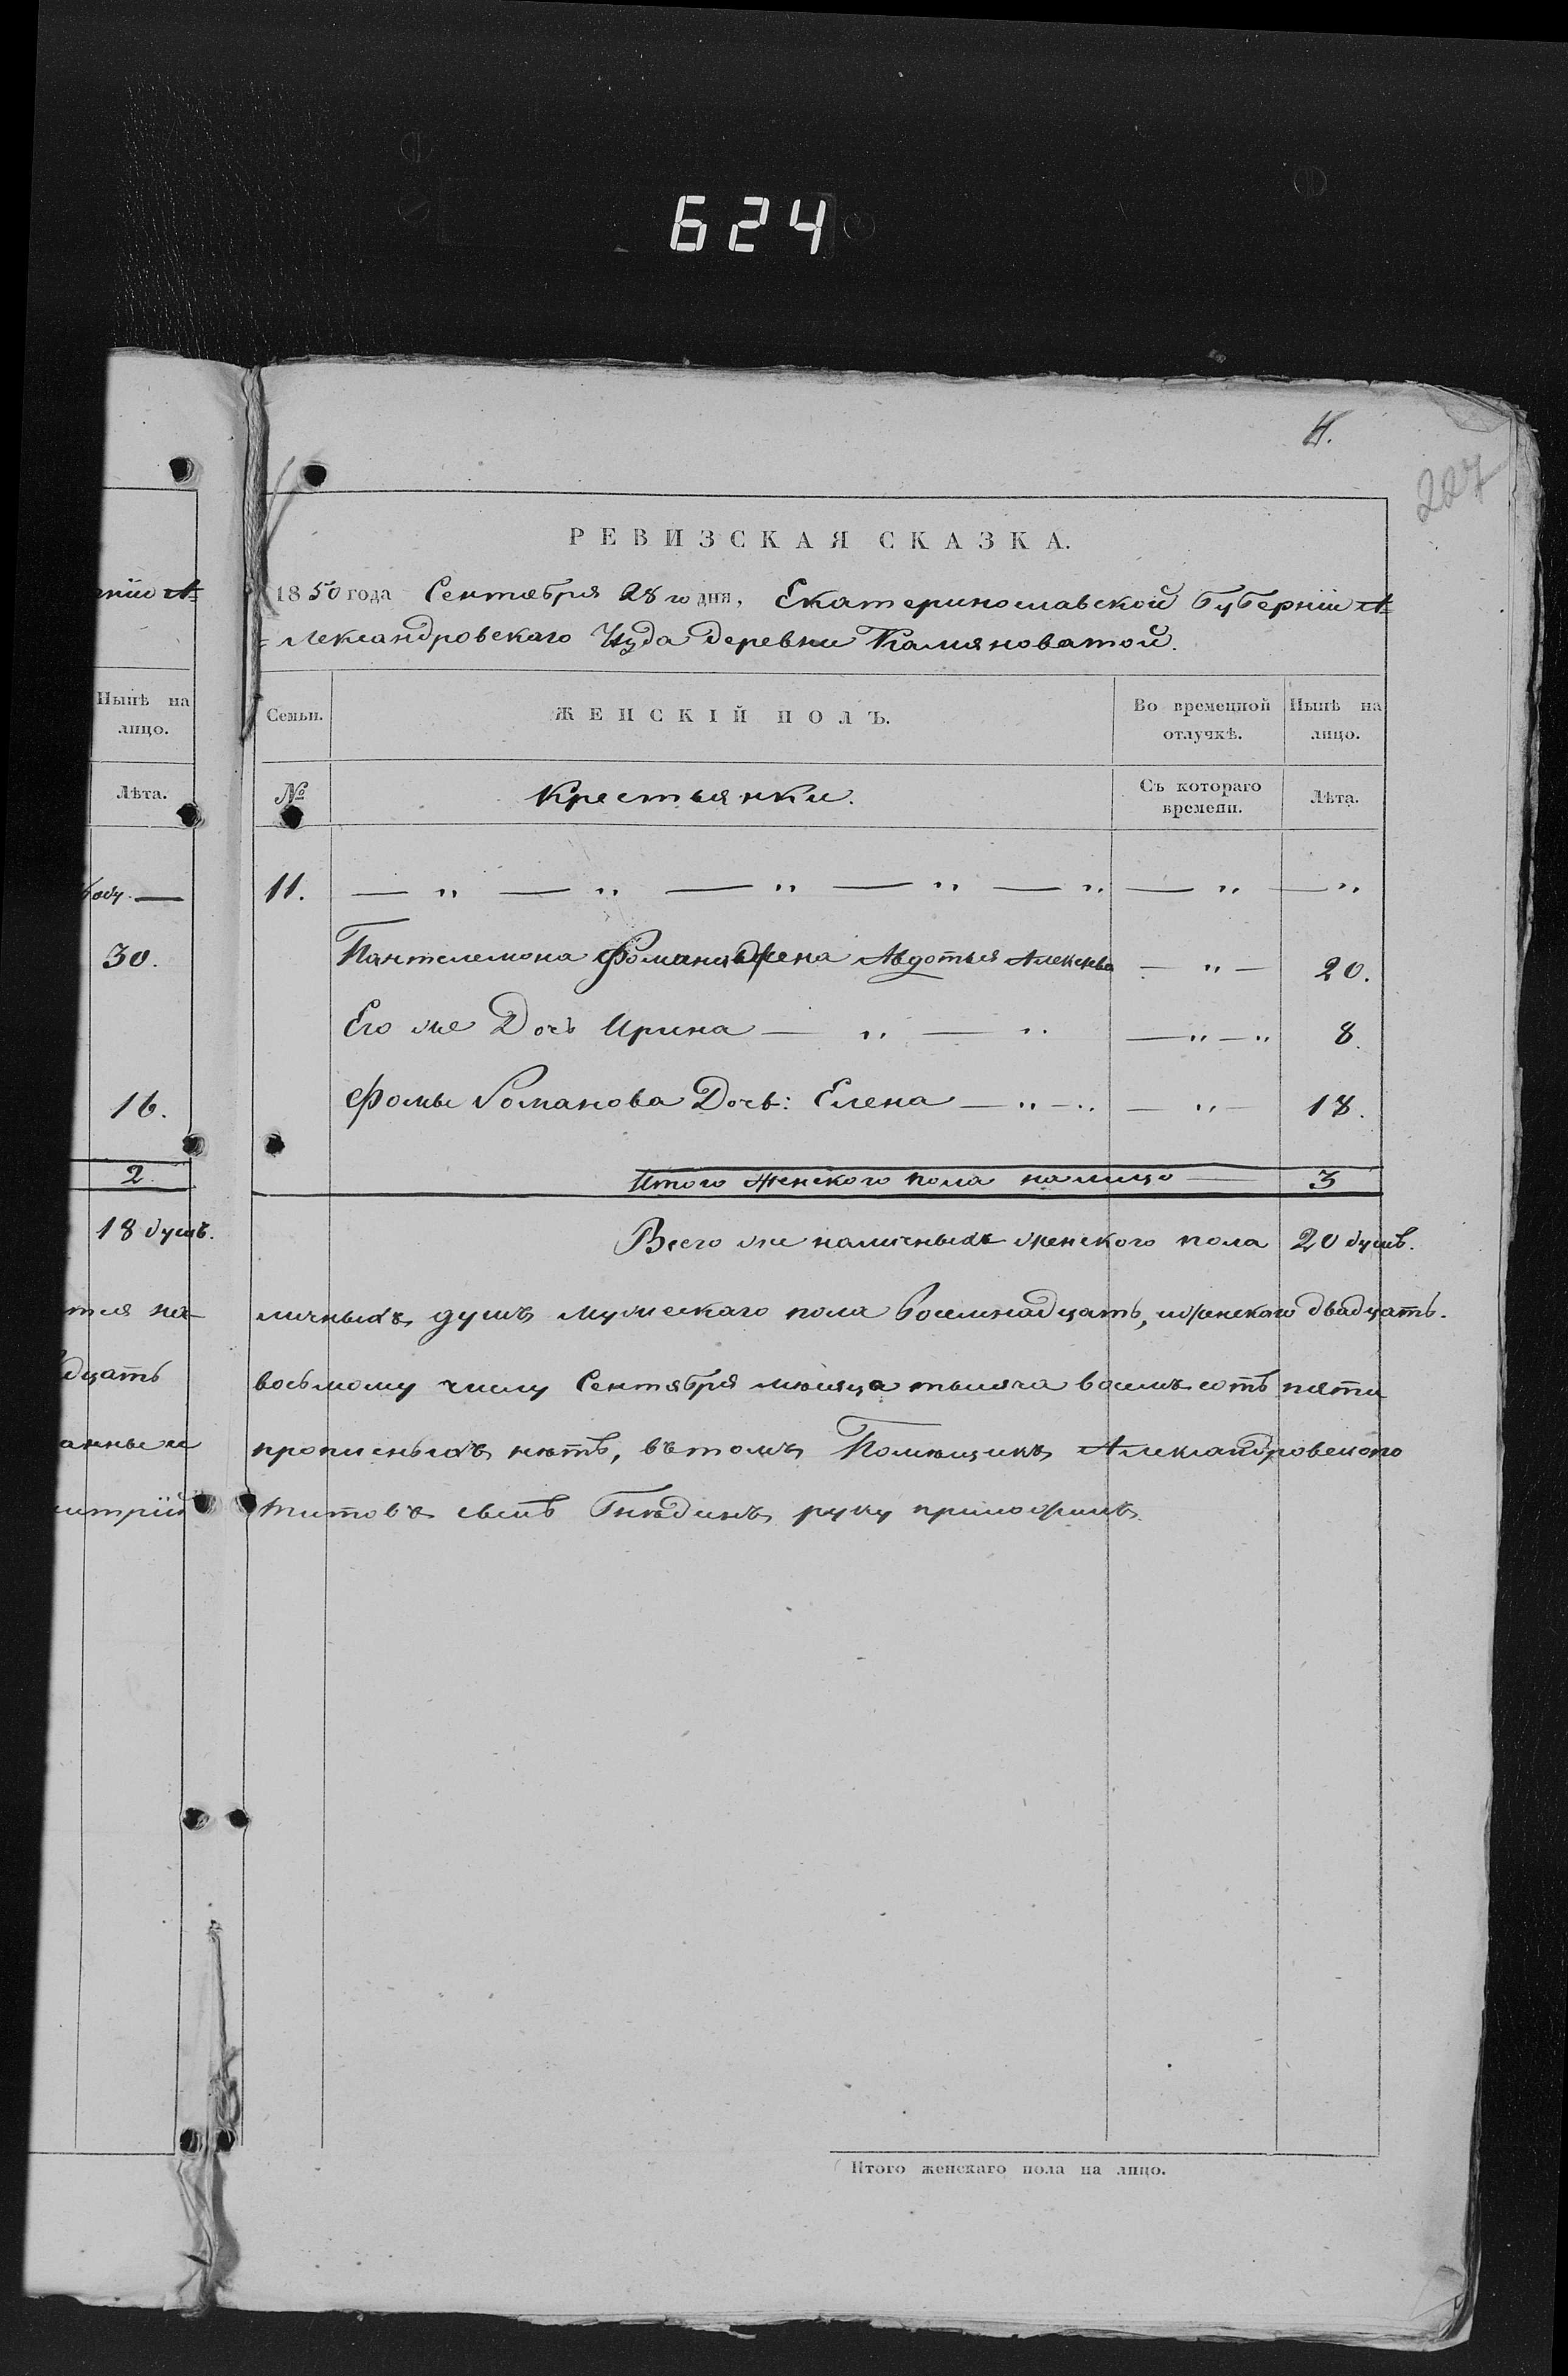 624
4.
227
РЕВИЗСКАЯ СКАЗКА.
1850 года Сентября 28 го дня, Екатеринославской Губерніи А=
=лександровскаго Уѣзда деревни Камяноватой.
Семьи.
ЖЕНСКІЙ ПОЛЪ.
Во временной отлучкѣ.
Нынѣ на лицо.
№
Крестьянки.
Съ котораго времени.
Лѣта.
11. — " — " — " — " — " — " — "
Пантелемона Фомина жена Авдотья Алексѣева — " — 20.
Его же Дочь Ирина — " — " — " — " 8.
Фомы Романова Дочь: Елена — " — " — " — 18.
Итого женского пола налицо — 3
Всего же наличныхъ женского пола 20 душъ.
личныхъ душъ мужескаго пола восемнадцать, женского двадцать.
восьмому числу Сентября мѣсяца тысяча восемьсотъ пяти
прописныхъ нѣтъ, въ томъ Помѣщикъ Александровского
Титовъ сынъ Гнѣдинъ руку приложилъ.
Итого женскаго пола на лицо.
рніи А=
Нынѣ на лицо.
Лѣта.
30.
16.
2
18 душъ.
тся на-
дцать
анные
митрій